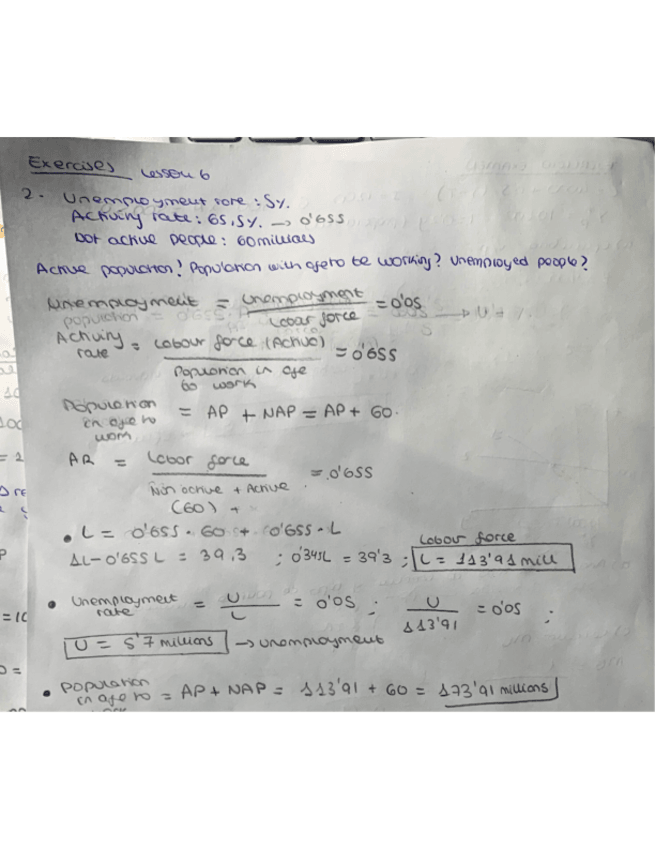 Exercises Lesson 6
2. Unemployment rate : 5%.
Activity rate: 65,5%. → 0'655
Not active people: 60 millions
Active population? Population with age to be working? Unemployed people?
Unemployment = Unemployment / Labour force = 0'05
Activity rate = Labour force (Active) / Population in age to work = 0'655
Population in age to work = AP + NAP = AP + 60.
AR = Labor force / Non active + Active (60) + = 0'655
• L = 0'655 · 60 + 0'655 · L
1L - 0'655 L = 39,3 ; 0'345L = 39'3 ; Labour force L = 113'91 mill
• Unemployment rate = U / L = 0'05 ; U / 113'91 = 0'05 ;
U = 5'7 millions → unemployment
• Population in age to = AP + NAP = 113'91 + 60 = 173'91 millions